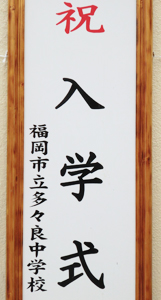 祝
入学式
福岡市立多々良中学校